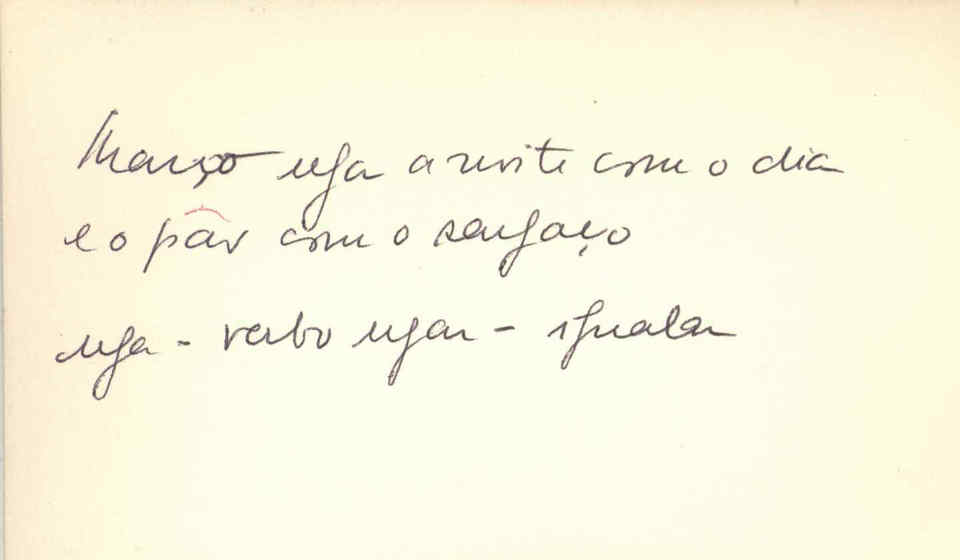 Março uga a noite com o dia
e o pão com o sargaço
uga - verbo ugar - igualar